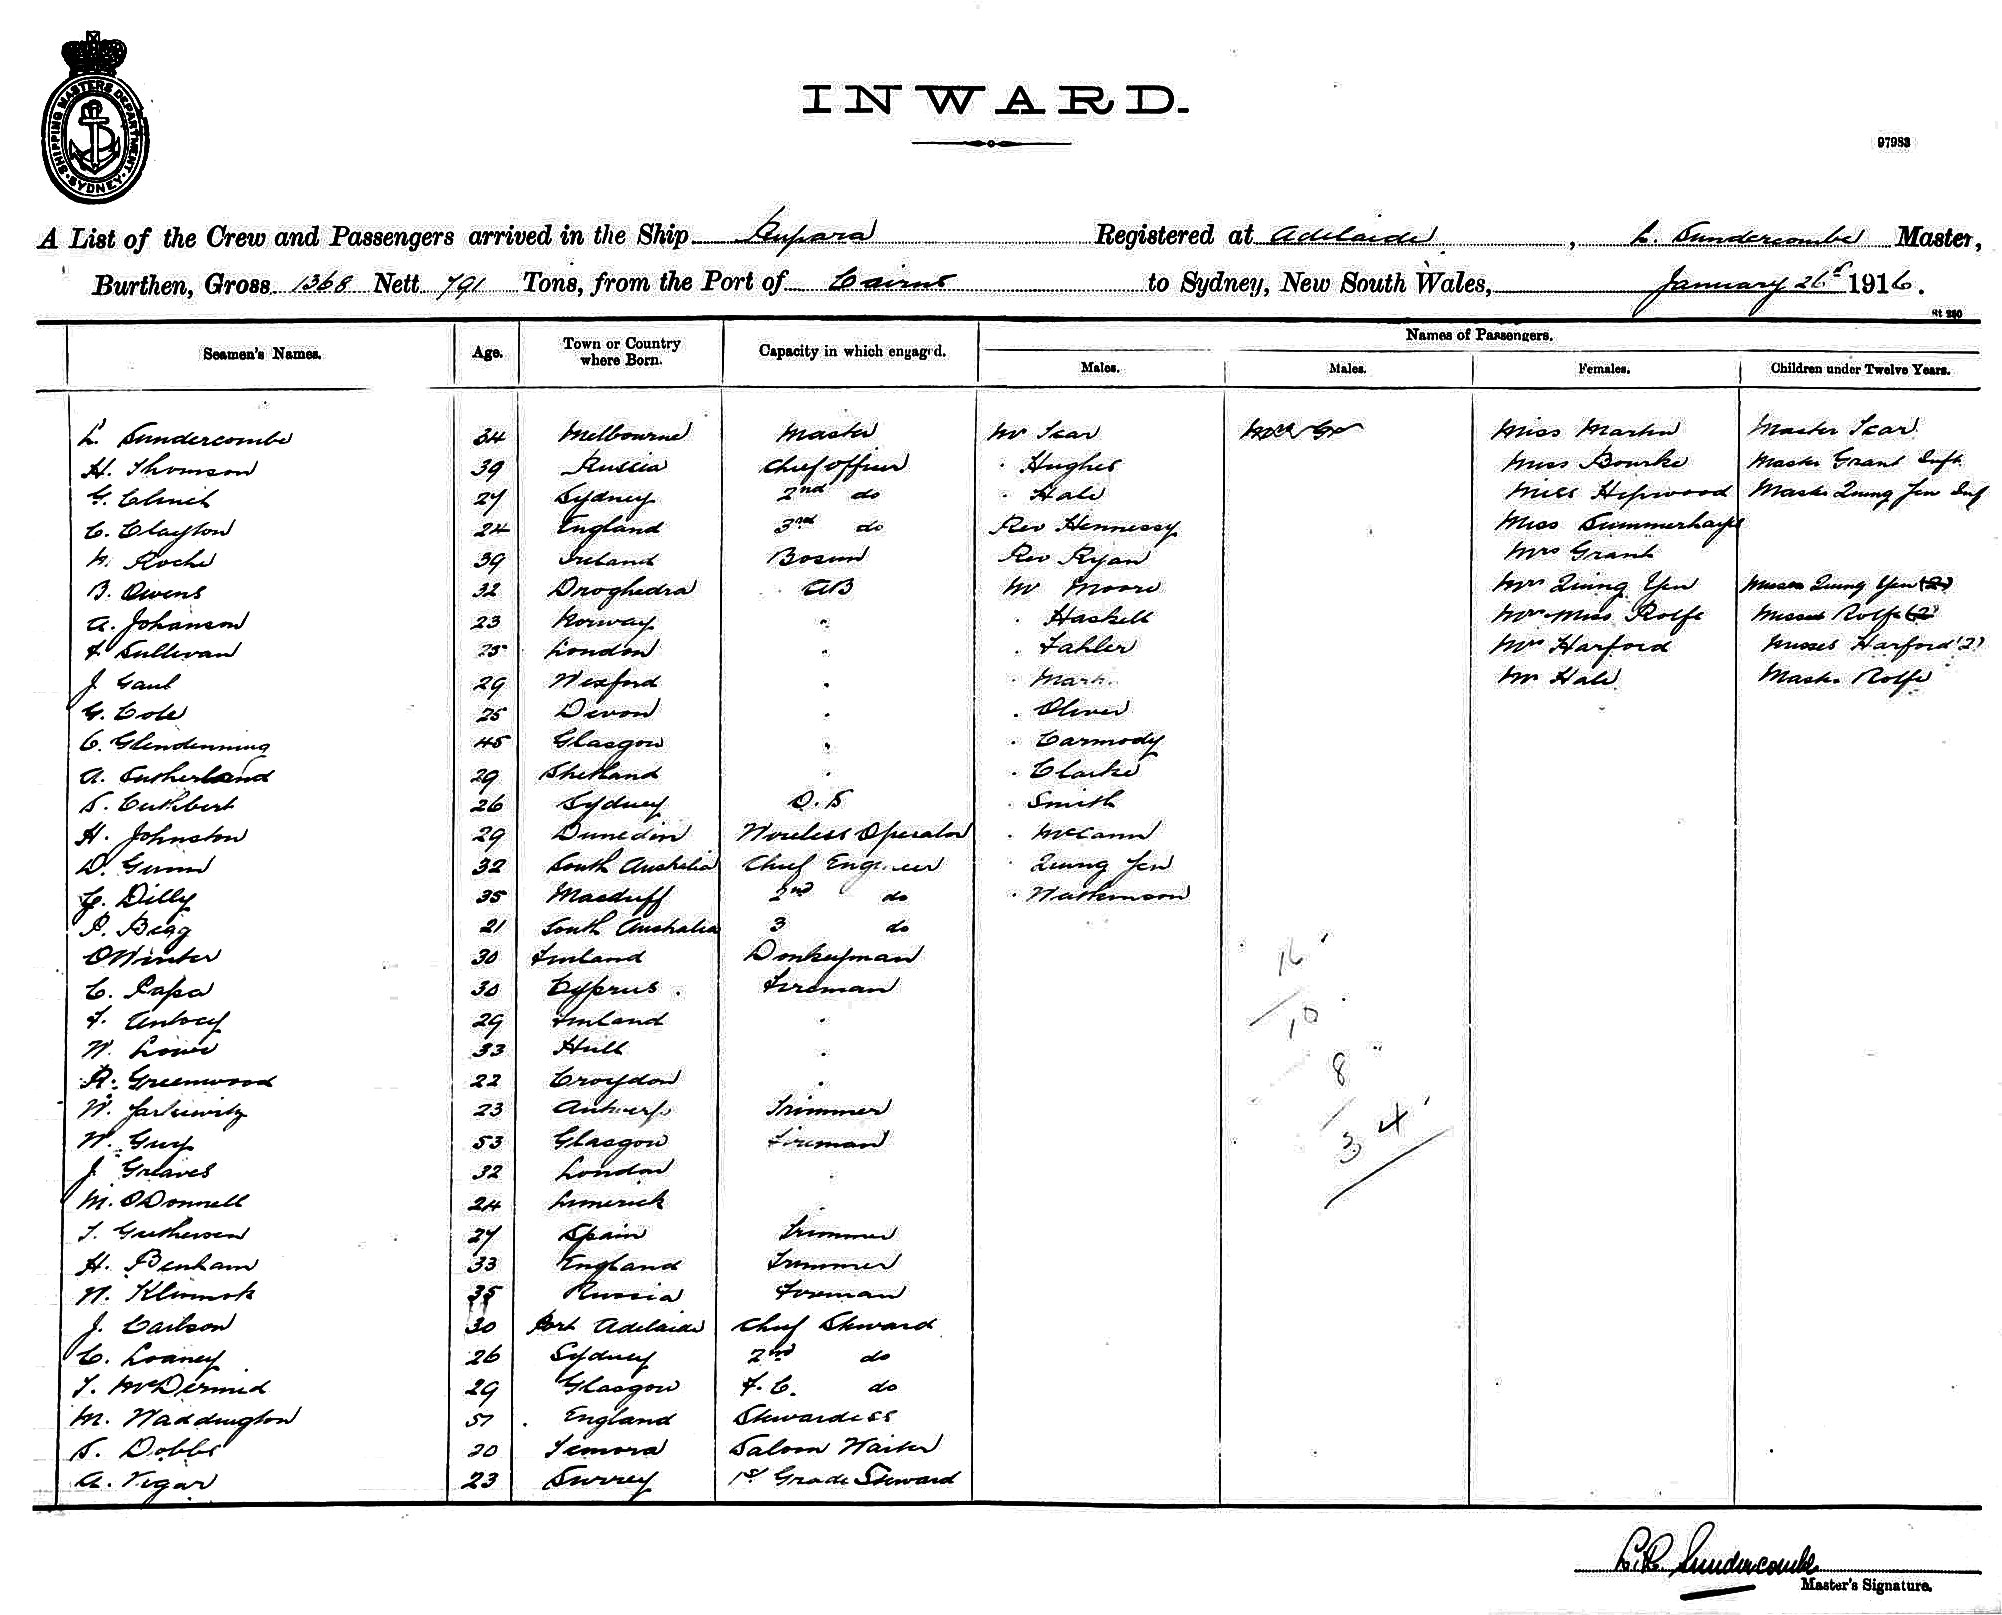 SHIPPING MASTERS DEPARTMENT · SYDNEY ·
INWARD.
97983
A List of the Crew and Passengers arrived in the Ship Rupara Registered at Adelaide, L. Sundercombe Master,
Burthen, Gross 1368 Nett 791 Tons, from the Port of Cairns to Sydney, New South Wales, January 26th 1916.
Seamen's Names. Age. Town or Country where Born. Capacity in which engaged. Names of Passengers.
Males. Males. Females. Children under Twelve Years.
L. Sundercombe 34 Melbourne Master Mr Scar Miss Martin Master Scar
H. Thomson 39 Russia Chief Officer " Hughes Miss Bourke Master Grant Inft
G. Clinch 27 Sydney 2nd do " Hale Miss Hipwood Master Quing Yen Inf
C. Clayton 24 England 3rd do Rev Hennessy Miss Summerhayes
Roche 39 Ireland Bosun Rev Ryan Mrs Grant
B. Owens 32 Drogheda AB Mr Moore Mrs Quing Yen Misses Quing Yen (2)
A. Johanson 23 Norway " " Haskell Mrs Miss Rolfe Misses Rolfe (2)
F. Sullivan 25 London " " Fahler Mrs Harford Misses Harford (2)
J. Gaul 29 Wexford " " Mark Mrs Hale Master Rolfe
G. Cole 25 Devon " " Oliver
C. Glendenning 45 Glasgow " " Carmody
A. Sutherland 29 Shetland " " Clarke
S. Cuthbert 26 Sydney O.S " Smith
H. Johnston 29 Dunedin Wireless Operator " McCann
D. Gunn 32 South Australia Chief Engineer " Quing Yen
Dilly 35 Macduff 2nd do " Watkinson
P. Begg 21 South Australia 3 do
O Winter 30 Finland Donkeyman
C. Papa 30 Cyprus. Fireman
F. 29 Finland "
W. Lowe 33 Hull "
R. Greenwood 22 Croydon "
W. 23 Antwerp Trimmer
W. Guy 53 Glasgow Fireman
J. Greaves 32 London "
M. O'Donnell 24 Limerick "
T. 27 Spain Trimmer
H. Benham 33 England Trimmer
35 Russia Fireman
J. Carlson 30 Port Adelaide Chief Steward
C. Loaney 26 Sydney 2nd do
T. McDermid 29 Glasgow F.C. do
M. Waddington 51 England Stewardess
S. Dobbs 20 Temora Saloon Waiter
A. Vigar 23 Surrey 1st Grade Steward
16
10
8
34
L.R. Sundercombe
Master's Signature.